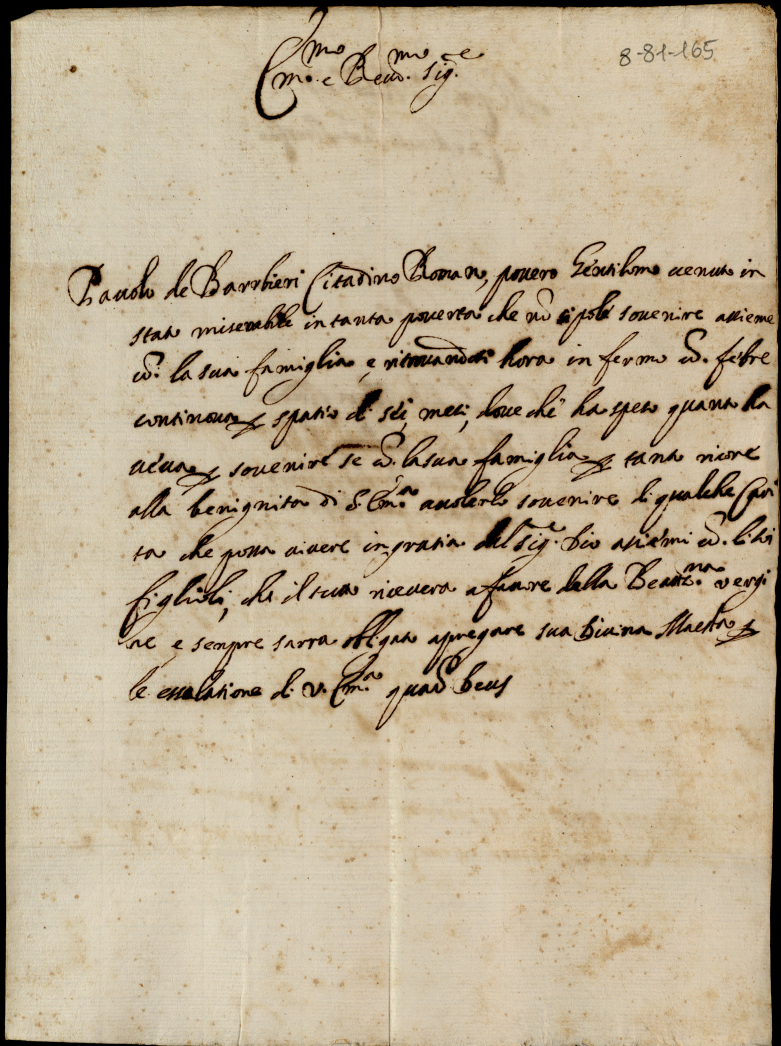 8-81-165
Emo e Revmo Sigre
Pauolo de Barrbieri Citadino Romano, pouero Gentilomo uenuto in
stato miserabile in tanta pouerta che nõ si polè souenire assieme
cõ. la sua famiglia e, ritrouandosi hora in fermo cõ. febre
continoua spatio di sei, mesi, doue che ha speso quanto ha
ueua souenire se cõ. la sua famiglia tanto ricore
alla benignita di S. Ema a uolerlo souenire di qualche Cari
ta che possa uiuere in gratia del Sigre Dio assiemi cõ. li soi
figlioli, che il tutto riceuera a fauore della Beatma vergi
ne e sempre sarra obligato a pregare sua Diuina Maesta
le essalatione di V. Ema quam Deus